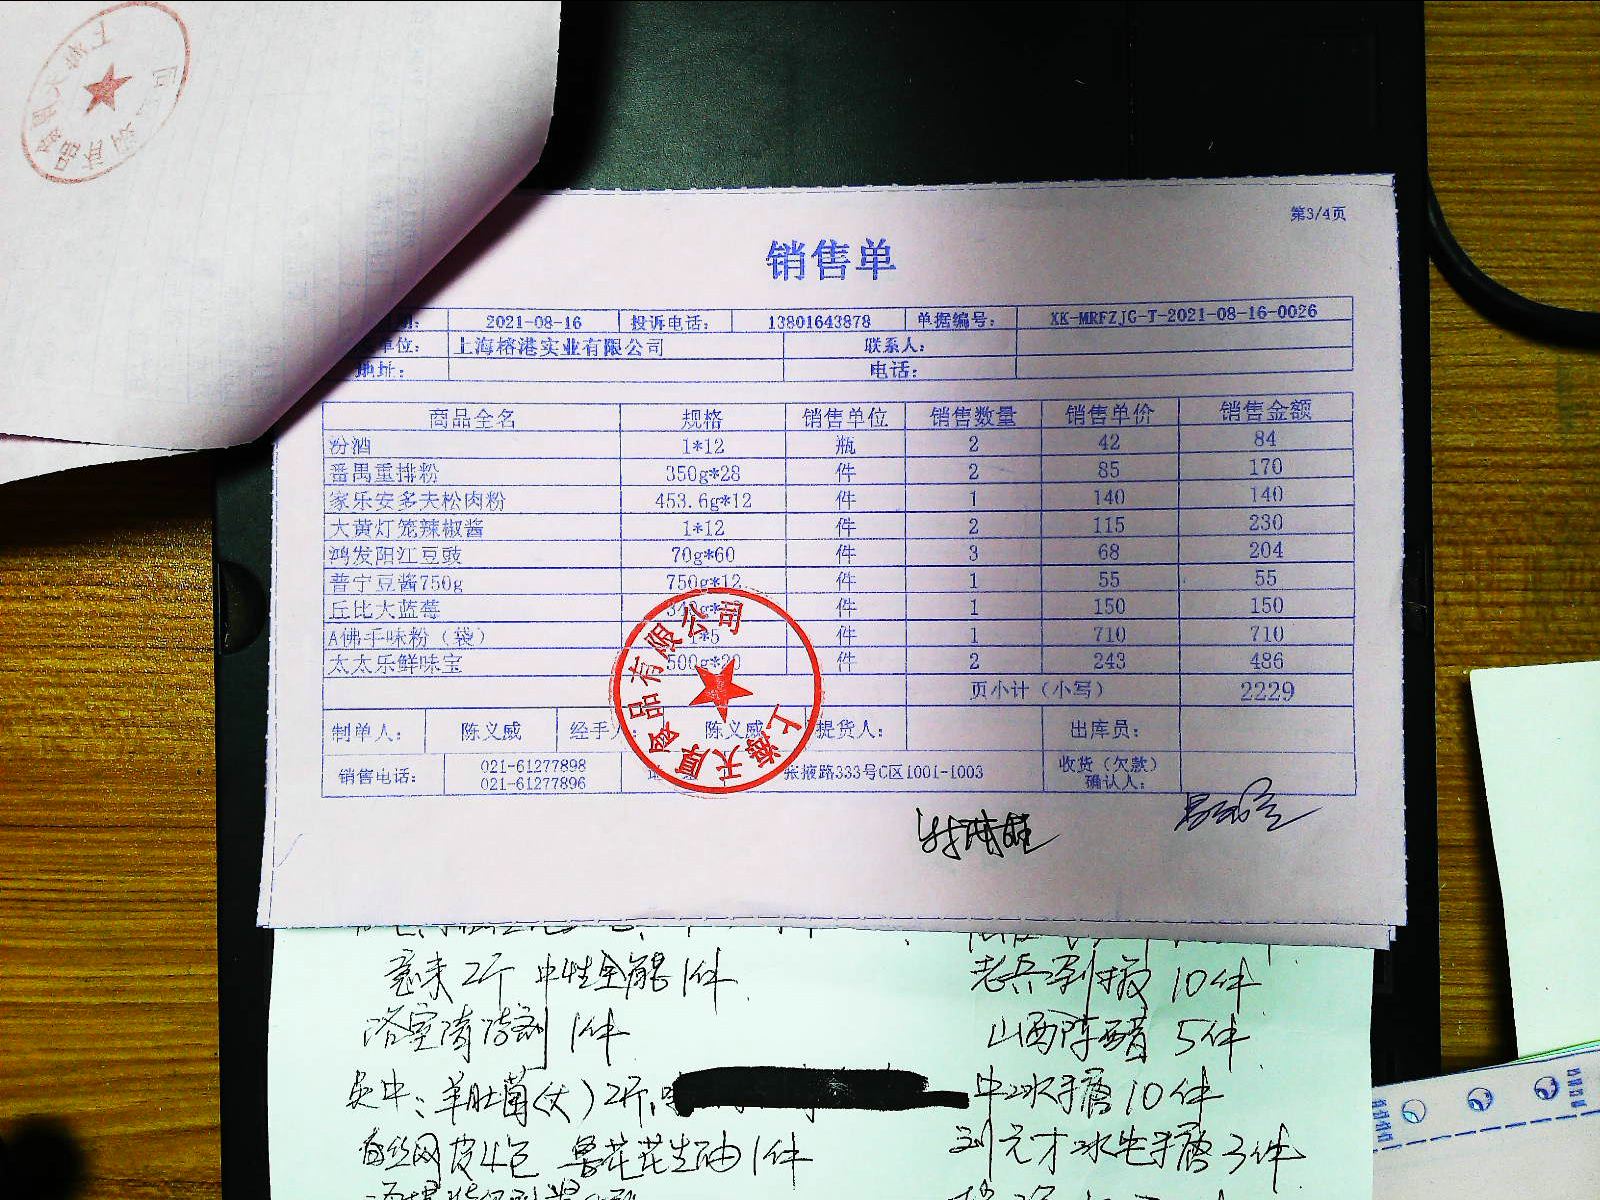 第3/4页
销售单
期： 2021-08-16 投诉电话： 13801643878 单据编号： XK-MRFZJG-T-2021-08-16-0026
单位： 上海榕港实业有限公司 联系人：
地址： 电话：
商品全名 规格 销售单位 销售数量 销售单价 销售金额
汾酒 1*12 瓶 2 42 84
番禺重排粉 350g*28 件 2 85 170
家乐安多夫松肉粉 453.6g*12 件 1 140 140
大黄灯笼辣椒酱 1*12 件 2 115 230
鸿发阳江豆豉 70g*60 件 3 68 204
普宁豆酱750g 750g*12 件 1 55 55
丘比大蓝莓 件 1 150 150
A佛手味粉（袋） 1*5 件 1 710 710
太太乐鲜味宝 500g*20 件 2 243 486
页小计（小写） 2229
制单人： 陈义威 经手人： 陈义威 提货人： 出库员：
销售电话： 021-61277898 021-61277896 张掖路333号C区1001-1003 收货（欠款）确认人：
上海天厚食品有限公司
意米 2斤 中性全能 1件 老兵 10件
浴室清洁剂 1件 山西陈醋 5件
吴中：羊肚菌（大）2斤， 中冰手撕 10件
网皮4包 鲁花花生油1件 3件